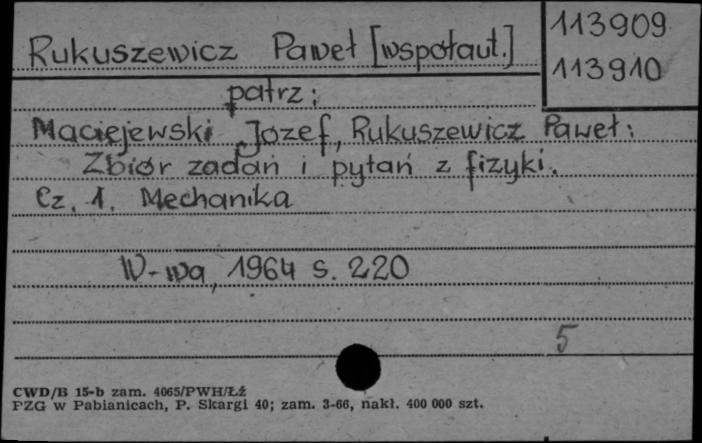 Rukuszewicz Paweł [współaut.]
113909
113910
patrz:
Maciejewski Józef, Rukuszewicz Paweł:
Zbiór zadań i pytań z fizyki.
Cz. 1. Mechanika
W-wa, 1964 s. 220
5
CWD/B 15-b zam. 4065/PWH/Łź
PZG w Pabianicach, P. Skargi 40; zam. 3-66, nakł. 400 000 szt.